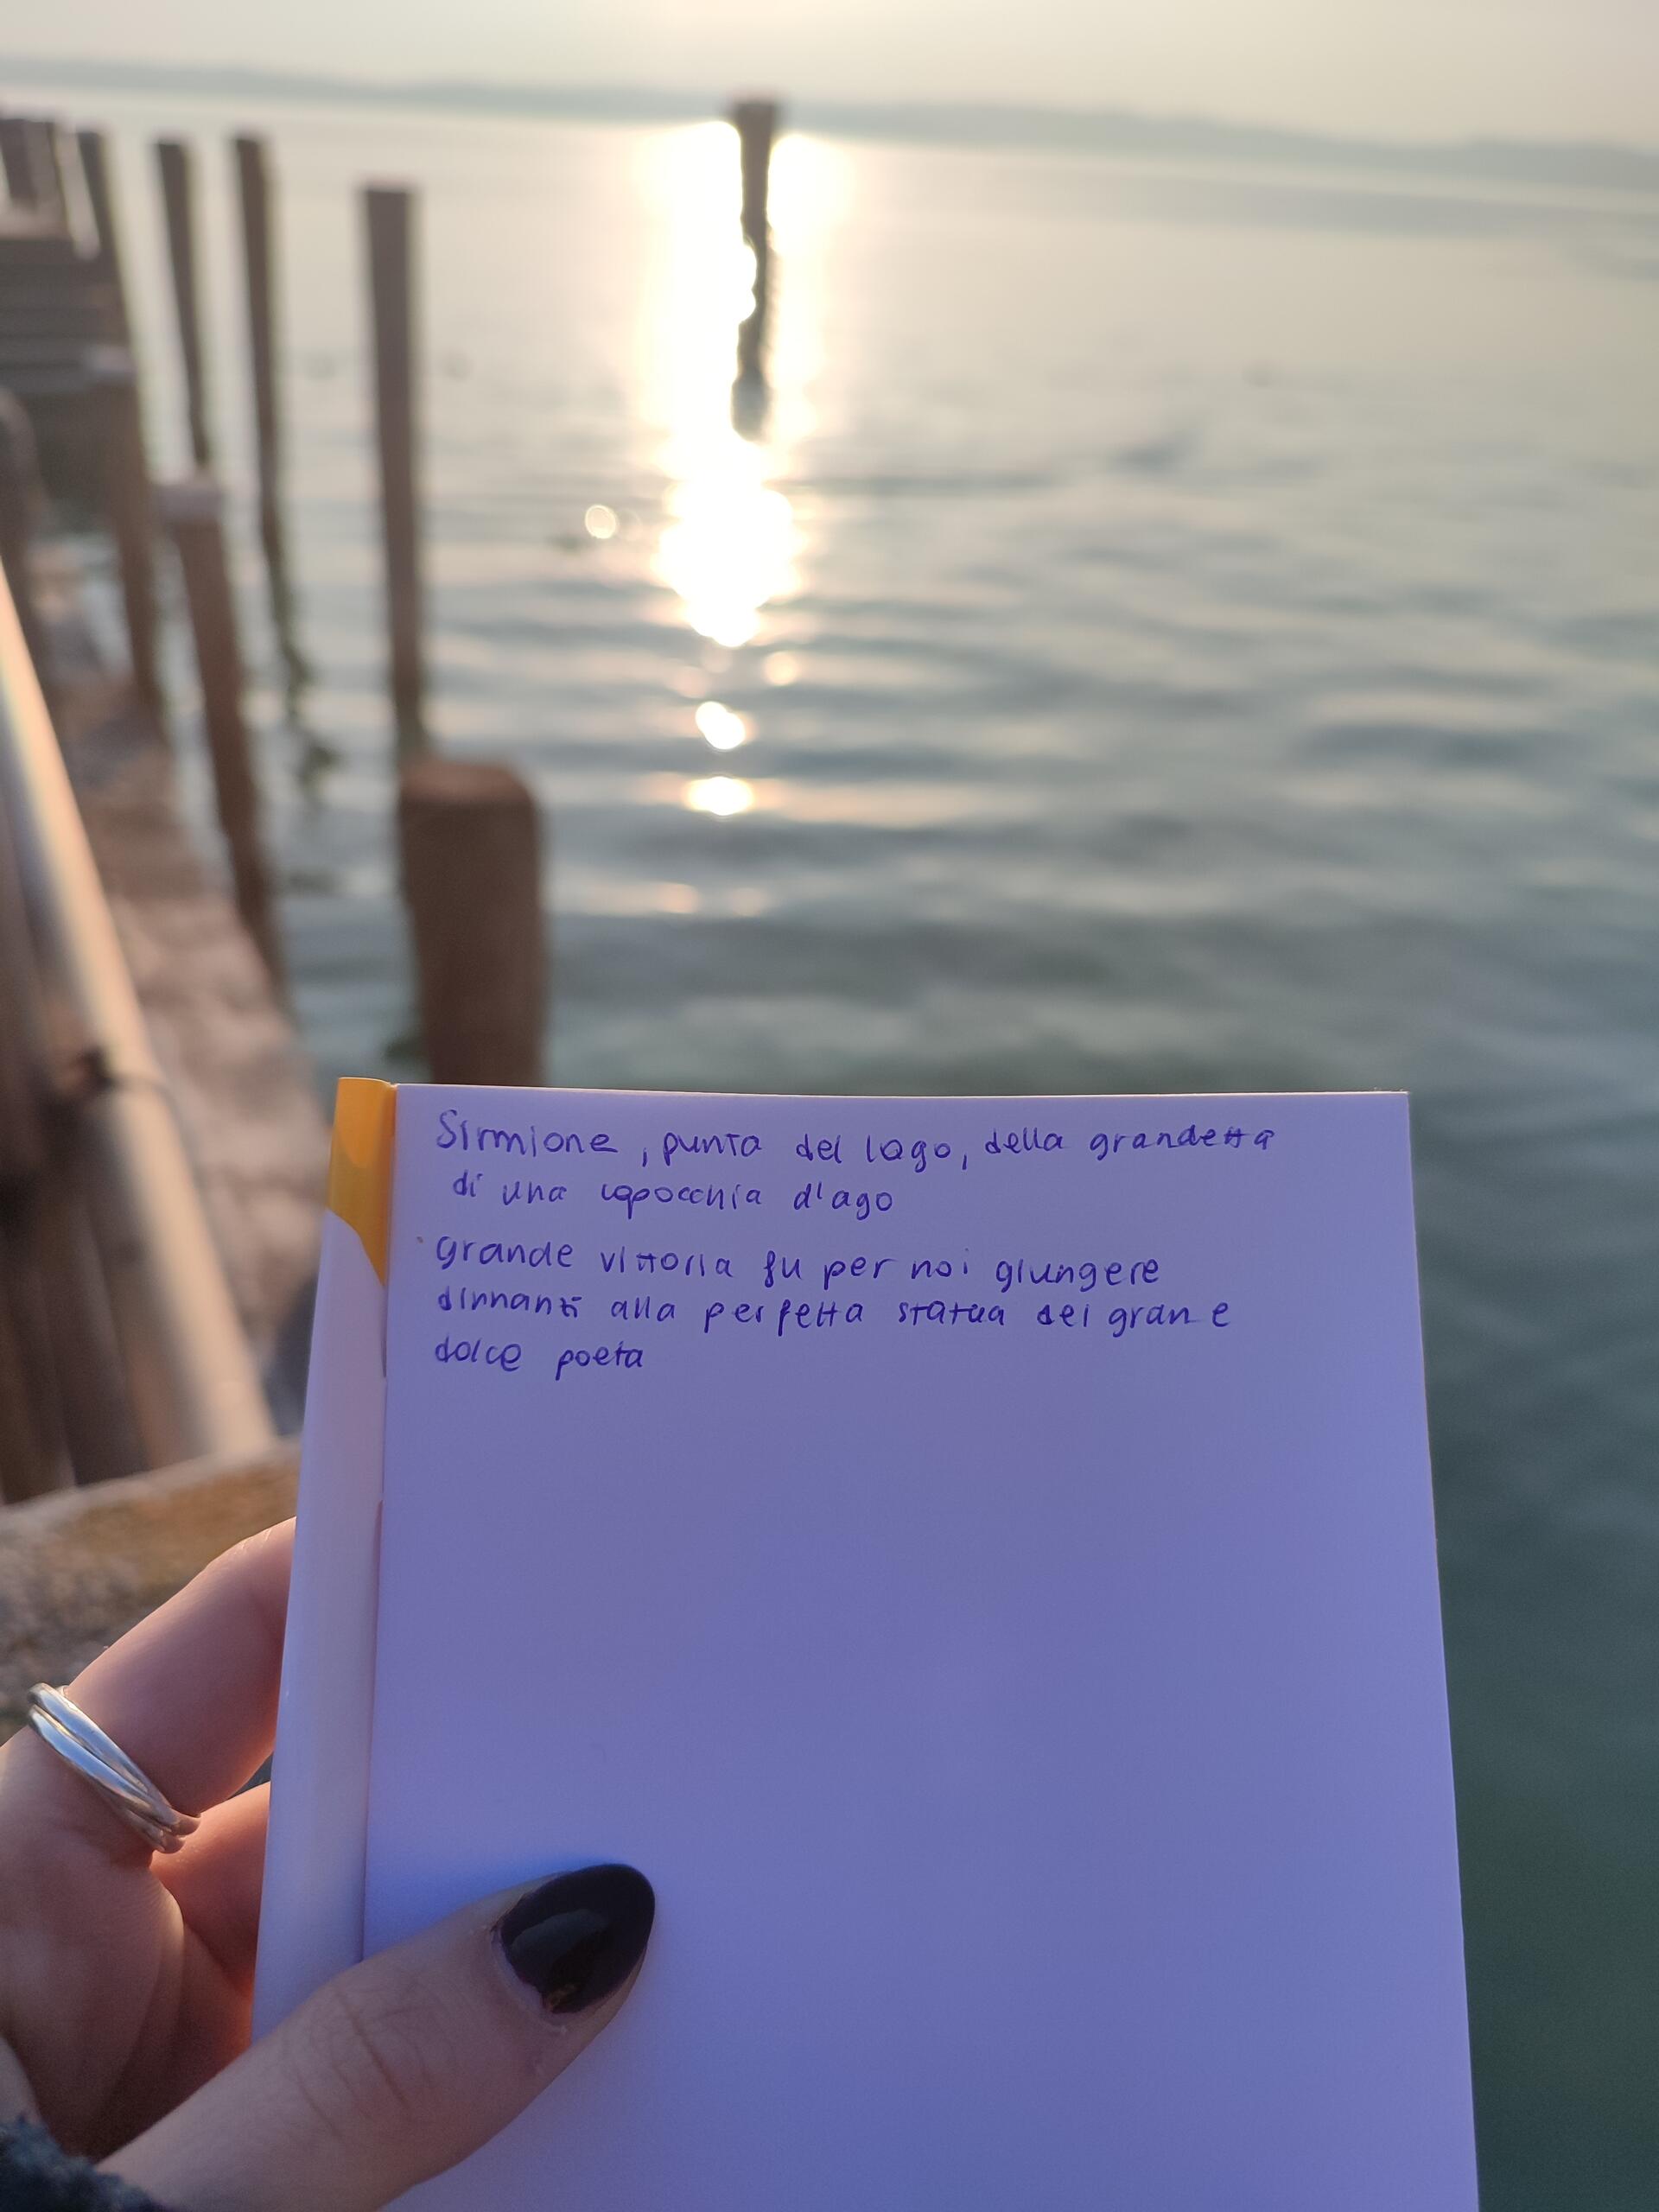 Sirmione, punta del lago, della grandezza
di una capocchia d'ago
grande vittoria fu per noi giungere
dinnanzi alla perfetta statua del gran e
dolce poeta